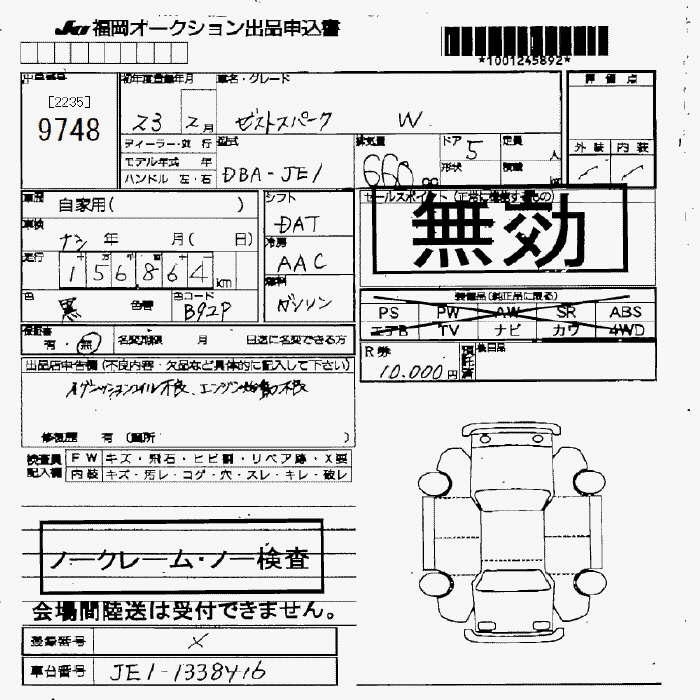 JU 福岡オークション出品申込書
*1001245892*
出品番号 初年度登録年月 車名・グレード 評価点
[2235]
9748
23 2月 ゼストスパーク W
ディーラー・並行 型式 排気量 ドア 定員 外装 内装
モデル年式 年 DBA-JE1 660 cc 5 人
ハンドル 左・右 形状 積載
車歴 自家用( ) シフト セールスポイント (正常に機能するもの)
車検 ナシ 年 月( 日) DAT 無効
走行 156,864 km 冷房 AAC
色 黒 色替 色コード B92P 燃料 ガソリン
装備品(純正品に限る)
PS PW AW SR ABS
エアB TV ナビ カワ 4WD
保証書 有・無 名変期限 月 日迄に名変できる方
R券 10.000円 預託済 後日品
出品店申告欄(不良内容・欠品など具体的に記入して下さい)
イグニッションコイル不良、エンジン始動不良
修復歴 有 (箇所 )
検査員記入欄 FW キズ・飛石・ヒビ割・リペア跡・X要
内装 キズ・汚レ・コゲ・穴・スレ・キレ・破レ
ノークレーム・ノー検査
会場間陸送は受付できません。
登録番号 X
車台番号 JE1-1338416